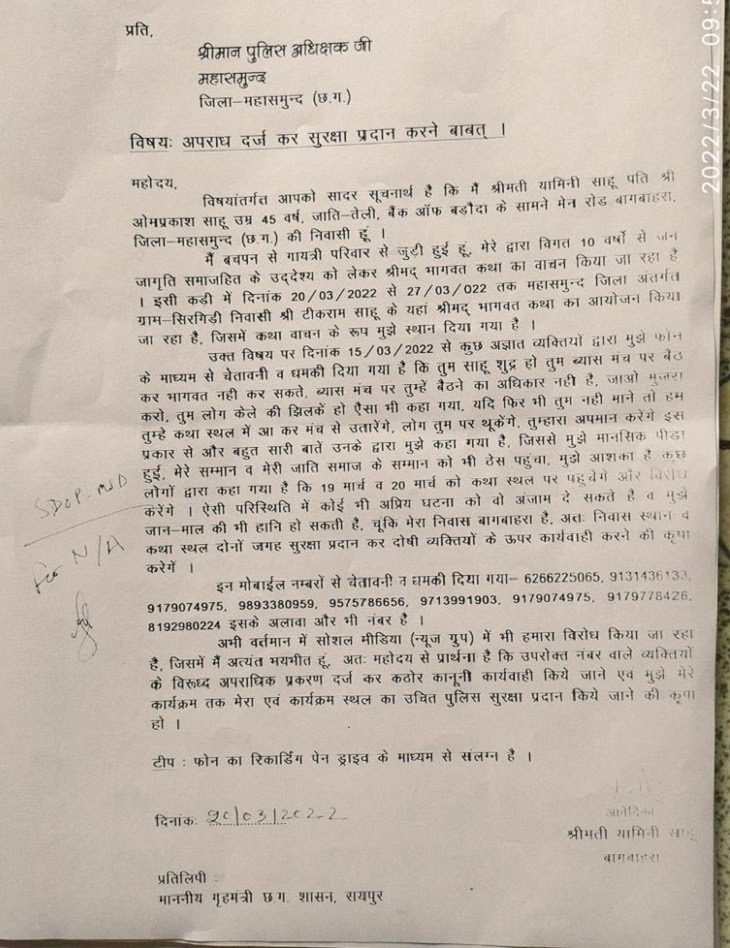 2022/3/22 09:5
प्रति,
श्रीमान पुलिस अधिक्षक जी
महासमुन्द
जिला–महासमुन्द (छ.ग.)
विषयः अपराध दर्ज कर सुरक्षा प्रदान करने बाबत् ।
महोदय,
विषयांतर्गत आपको सादर सूचनार्थ है कि मैं श्रीमती यामिनी साहू पति श्री
ओमप्रकाश साहू उम्र 45 वर्ष, जाति–तेली, बैंक ऑफ बड़ौदा के सामने मेन रोड बागबाहरा,
जिला–महासमुन्द (छ.ग.) की निवासी हूं ।
मैं बचपन से गायत्री परिवार से जुड़ी हुई हूं, मेरे द्वारा विगत 10 वर्षो से जन
जागृति समाजहित के उद्देश्य को लेकर श्रीमद् भागवत कथा का वाचन किया जा रहा है
। इसी कड़ी में दिनांक 20/03/2022 से 27/03/022 तक महासमुन्द जिला अंतर्गत
ग्राम–सिरगिड़ी निवासी श्री टीकराम साहू के यहां श्रीमद् भागवत कथा का आयोजन किया
जा रहा है, जिसमें कथा वाचन के रूप मुझे स्थान दिया गया है ।
उक्त विषय पर दिनांक 15/03/2022 से कुछ अज्ञात व्यक्तियों द्वारा मुझे फोन
के माध्यम से चेतावनी व धमकी दिया गया है कि तुम साहू शुद्र हो तुम ब्यास मंच पर बैठ
कर भागवत नही कर सकते, ब्यास मंच पर तुम्हें बैठने का अधिकार नही है, जाओ मुजरा
करो, तुम लोग केले की झिलकें हो ऐसा भी कहा गया, यदि फिर भी तुम नही माने तो हम
तुम्हे कथा स्थल में आ कर मंच से उतारेंगे, लोग तुम पर थूकेंगे, तुम्हारा अपमान करेंगे इस
प्रकार से और बहुत सारी बातें उनके द्वारा मुझे कहा गया है, जिससे मुझे मानसिक पीडा
हुई, मेरे सम्मान व मेरी जाति समाज के सम्मान को भी ठेस पहुंचा, मुझे आशका है कछ
लोगों द्वारा कहा गया है कि 19 मार्च व 20 मार्च को कथा स्थल पर पहुंचेगे और विरोध
करेंगे । ऐसी परिस्थिति में कोई भी अप्रिय घटना को वो अंजाम दे सकते है व मुझे
जान–माल की भी हानि हो सकती है, चूंकि मेरा निवास बागबाहरा है, अतः निवास स्थान व
कथा स्थल दोनों जगह सुरक्षा प्रदान कर दोषी व्यक्तियों के ऊपर कार्यवाही करने की कृपा
करेगें ।
SDOP-
For N/A
इन मोबाईल नम्बरों से चेतावनी व धमकी दिया गया– 6266225065, 9131436133,
9179074975, 9893380959, 9575786656, 9713991903, 9179074975, 9179778426,
8192980224 इसके अलावा और भी नंबर है ।
अभी वर्तमान में सोशल मीडिया (न्यूज ग्रुप) में भी हमारा विरोध किया जा रहा
है, जिसमें मैं अत्यंत भयभीत हूं, अतः महोदय से प्रार्थना है कि उपरोक्त नंबर वाले व्यक्तियों
के विरूध्द अपराधिक प्रकरण दर्ज कर कठोर कानूनी कार्यवाही किये जाने एवं मुझे मेरे
कार्यक्रम तक मेरा एवं कार्यक्रम स्थल का उचित पुलिस सुरक्षा प्रदान किये जाने की कृपा
हो ।
टीप : फोन का रिकार्डिंग पेन ड्राइव के माध्यम से संलग्न है ।
दिनांकः 20/03/2022
आवेदिका
श्रीमती यामिनी साहू
बागबाहरा
प्रतिलिपी :
माननीय गृहमंत्री छ.ग. शासन, रायपुर